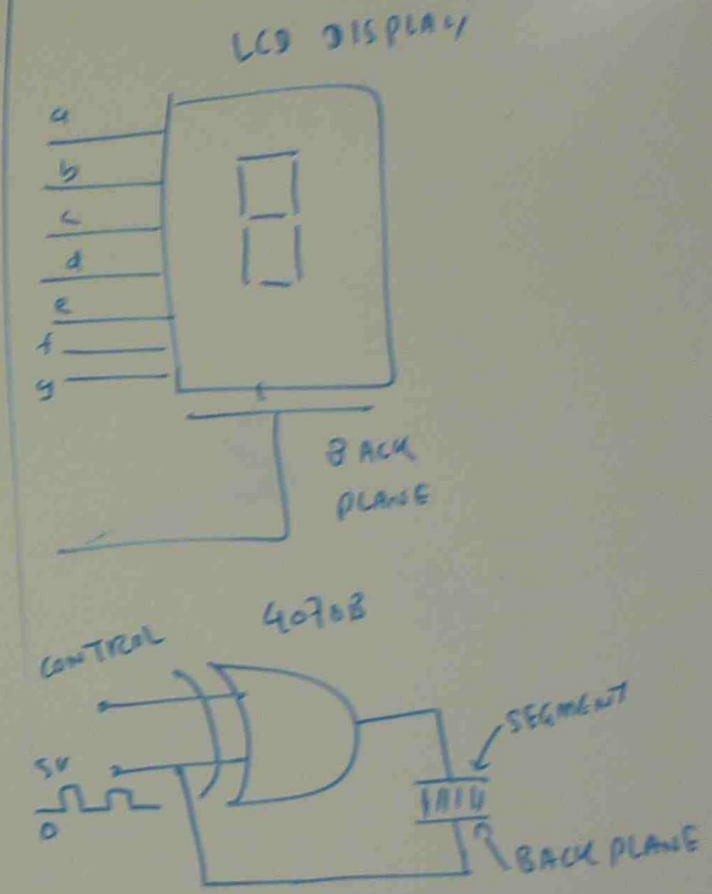 LCD DISPLAY
a
b
c
d
e
f
g
BACK
PLANE
4070B
CONTROL
SEGMENT
5V
0
BACK PLANE